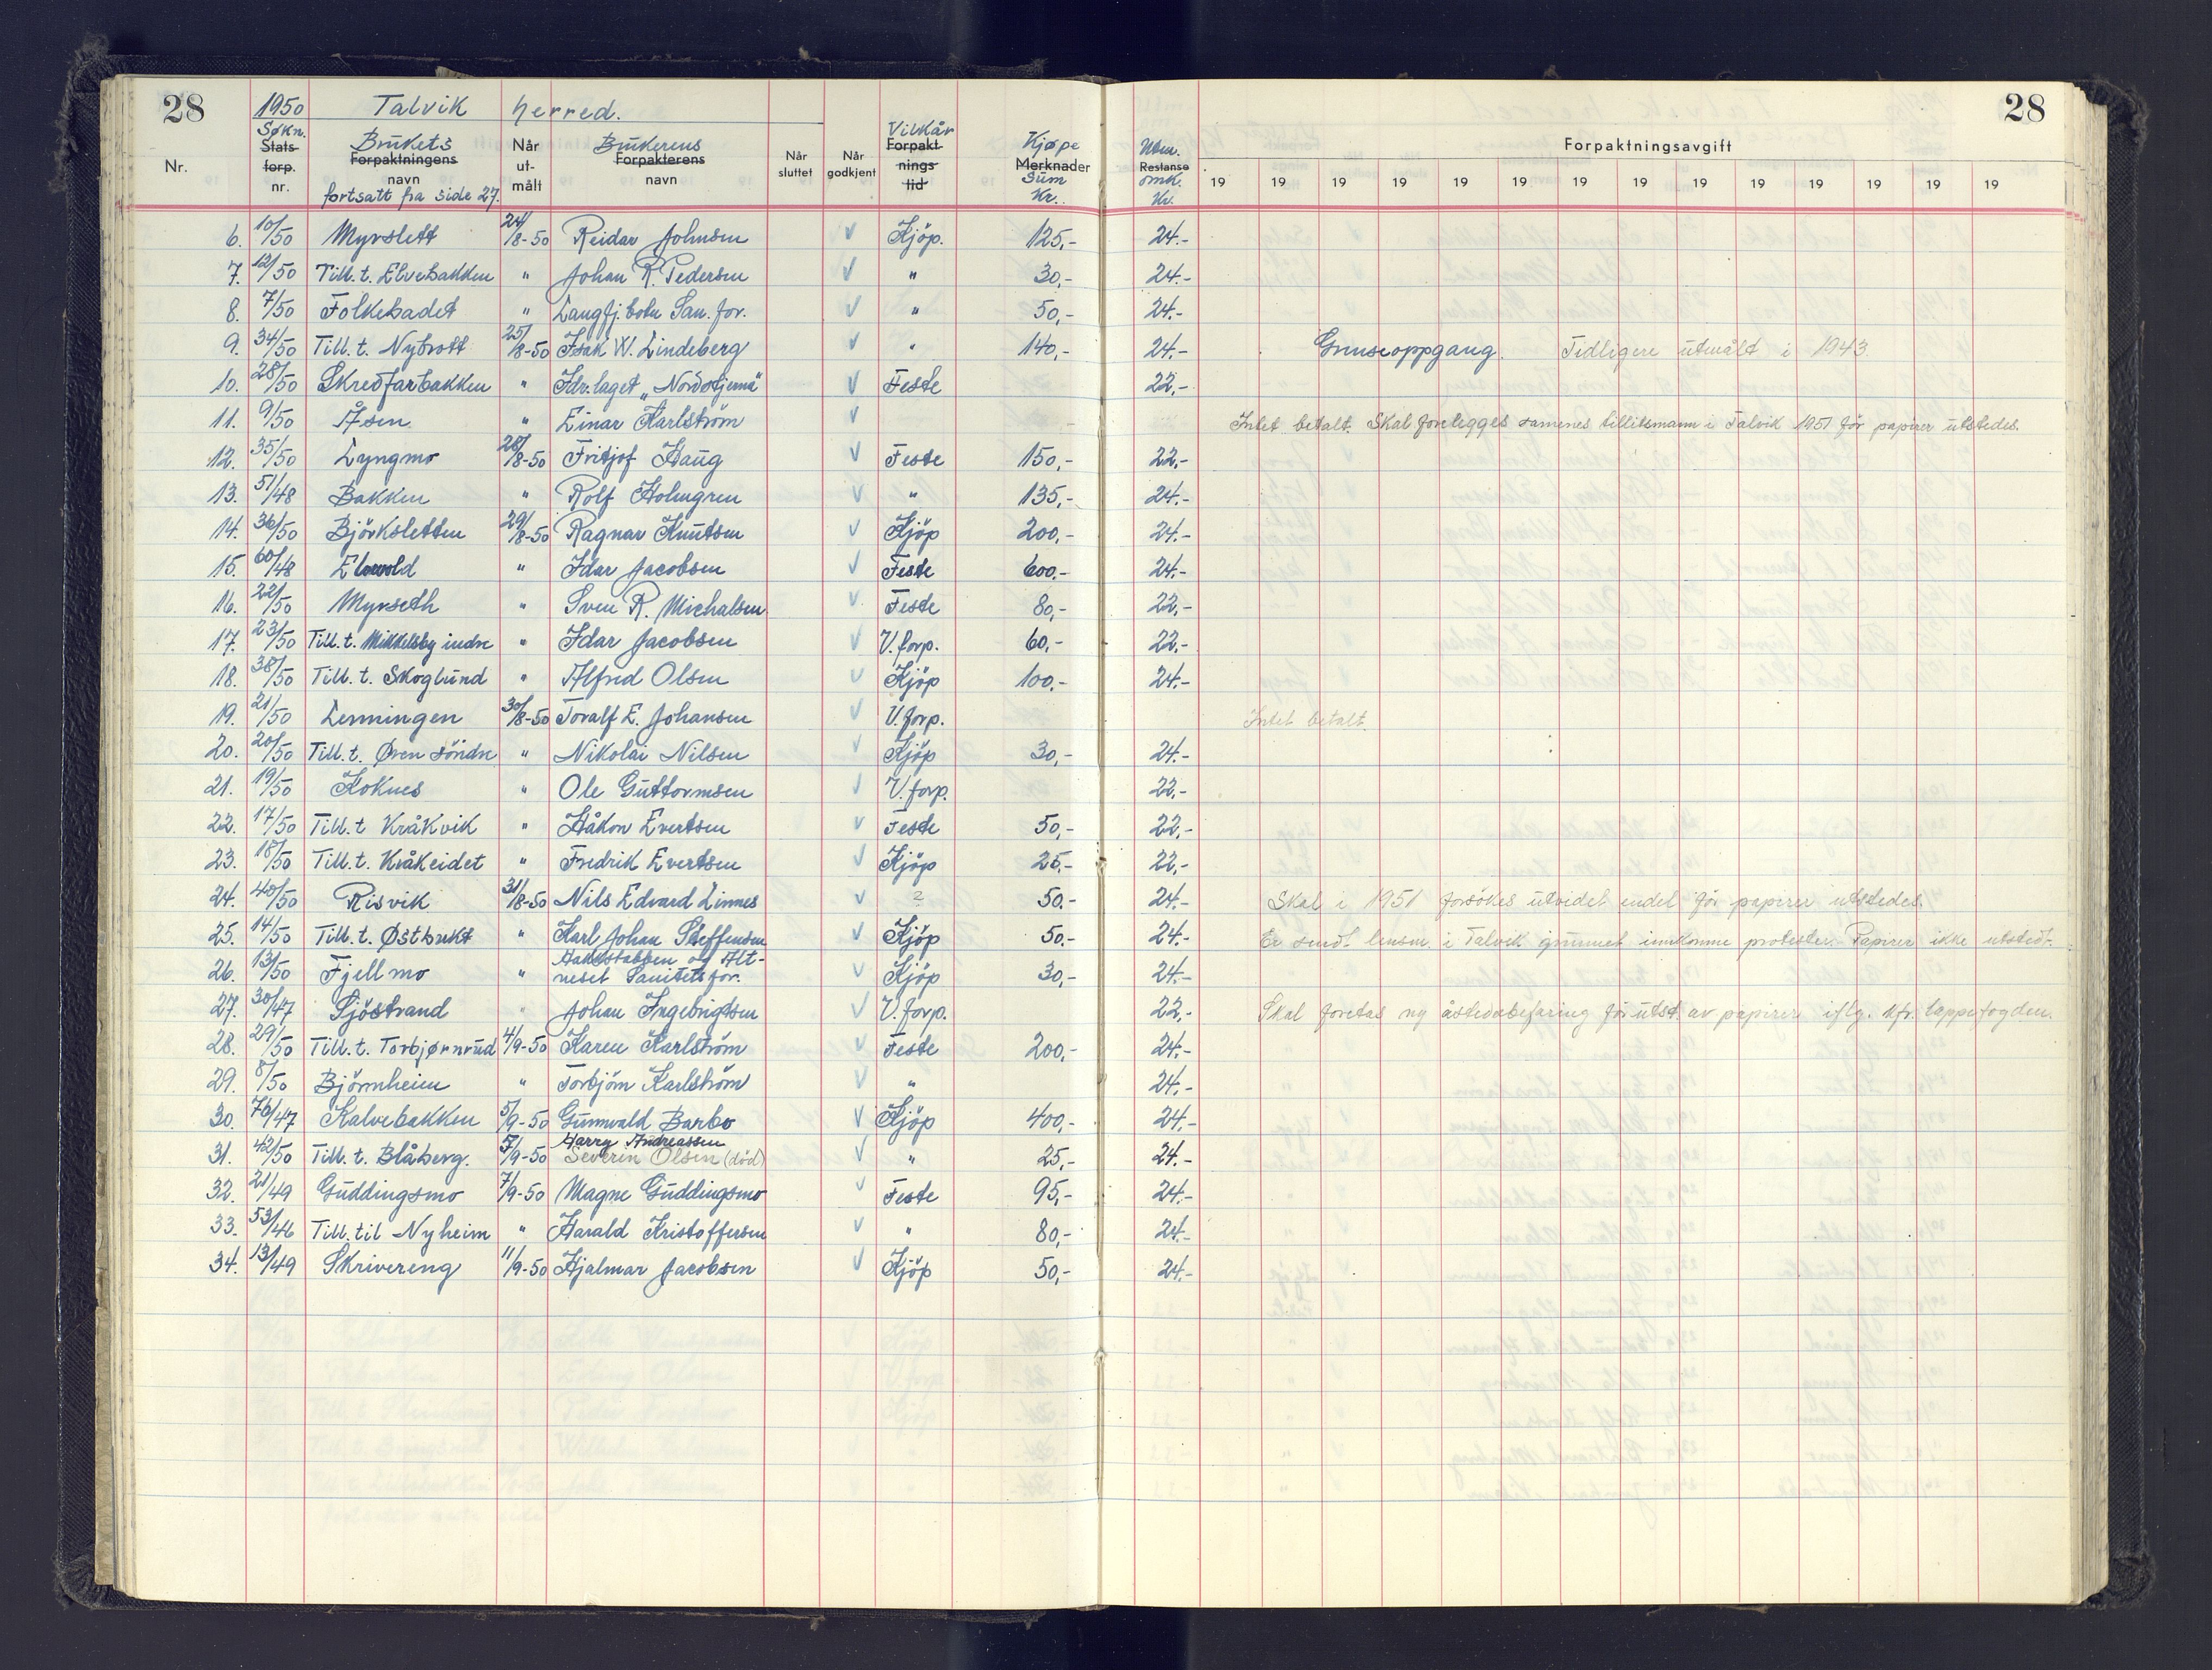 28 1950 Talvik herred. 28
Nr. Søkn. Stats-forp. nr. Brukets Forpaktningens navn fortsatt fra side 27. Når ut-målt Brukerens Forpakterens navn Når sluttet Når godkjent Vilkår Forpakt-nings-tid Kjøpe Merknader sum Kr. Utm. Restanse omk. Kr. Forpaktningsavgift
19 19 19 19 19 19 19 19 19 19 19 19 19 19
6. 10/50 Myrslett 24/8-50 Reidar Johnsen √ Kjöp. 125,- 24.-
7. 12/50 Till. t. Elvebakken " Johan R. Pedersen √ " 30,- 24.-
8. 7/50 Folkebadet " Langfj.botn San. for. √ " 50,- 24.-
9. 34/50 Till. t. Nybrott 25/8-50 Isak W. Lindeberg √ " 140,- 24.- Grenseoppgang. Tidligere utmålt i 1943.
10. 28/50 Skredfarbakken " Idr.laget „Nordstjerna" √ Feste 22,-
11. 9/50 Åsen " Einar Karlström √ Intet betalt. Skal forelegges samenes tillitsmann i Talvik 1951 för papirer utstedes.
12. 35/50 Lyngmo 28/8-50 Fritjof Haug √ Feste 150,- 22,-
13. 51/48 Bakken " Rolf Holmgren √ " 135,- 24.-
14. 36/50 Björksletten 29/8-50 Ragnar Knutsen √ Kjöp 200,- 24.-
15. 60/48 Elvevold " Idar Jacobsen √ Feste 600.- 24.-
16. 22/50 Myrseth " Sven R. Michalsen √ Feste 80,- 22,-
17. 23/50 Till. t. Mikkelsby indre " Idar Jacobsen √ V. forp. 60,- 22,-
18. 38/50 Till. t. Skoglund " Alfred Olsen √ Kjöp 100,- 24.-
19. 21/50 Lenningen 30/8-50 Toralf E. Johansen √ V. forp. Intet betalt.
20. 20/50 Till. t. Øren söndre " Nikolai Nilsen √ Kjöp 30,- 24.-
21. 19/50 Koknes " Ole Guttormsen √ V. forp. 22,-
22. 17/50 Till. t Kråkvik " Håkon Evertsen √ Feste 50,- 22,-
23. 18/50 Till. t. Kråkeidet " Fredrik Evertsen √ Kjöp 25,- 22,-
24. 40/50 Risvik 31/8-50 Nils Edvard Linnes √ ? 50.- 24.- Skal i 1951 forsökes utvidet endel för papirer utstedes.
25. 14/50 Till. t. Østbukt " Karl Johan Steffensen √ Kjöp 50.- 24.- Er sendt lensm. i Talvik grunnet innkomne protester. Papirer ikke utstedt.
26. 13/50 Fjellmo " Hakkstabben og Alt-
neset Sanitetsfor. √ Kjöp 30,- 24.-
27. 30/47 Sjöstrand " Johan Ingebrigtsen √ V. forp. 22,- Skal foretas ny åstedsbefaring för utst. av papirer iflg. kfr. lappefogden.
28. 29/50 Till. t. Torbjørnrud 4/9-50 Karen Karlström √ Feste 200,- 24.-
29. 8/50 Björnheim " Torbjörn Karlström √ " 24.-
30. 76/47 Kalvebakken 5/9-50 Gunnvald Barbo √ Kjöp 400,- 24.-
Harry Andreassen
31. 42/50 Till. t. Blåberg. 5/9-50 Severin Olsen (död) √ " 25,- 24.-
32. 21/49 Guddingsmo 7/9-50 Magne Guddingsmo √ Feste 95,- 24.-
33. 53/46 Till. til Nyheim " Harald Kristoffersen √ " 80,- 24.-
34. 13/49 Skrivereng 11/9-50 Hjalmar Jacobsen √ Kjöp 50,- 24.-